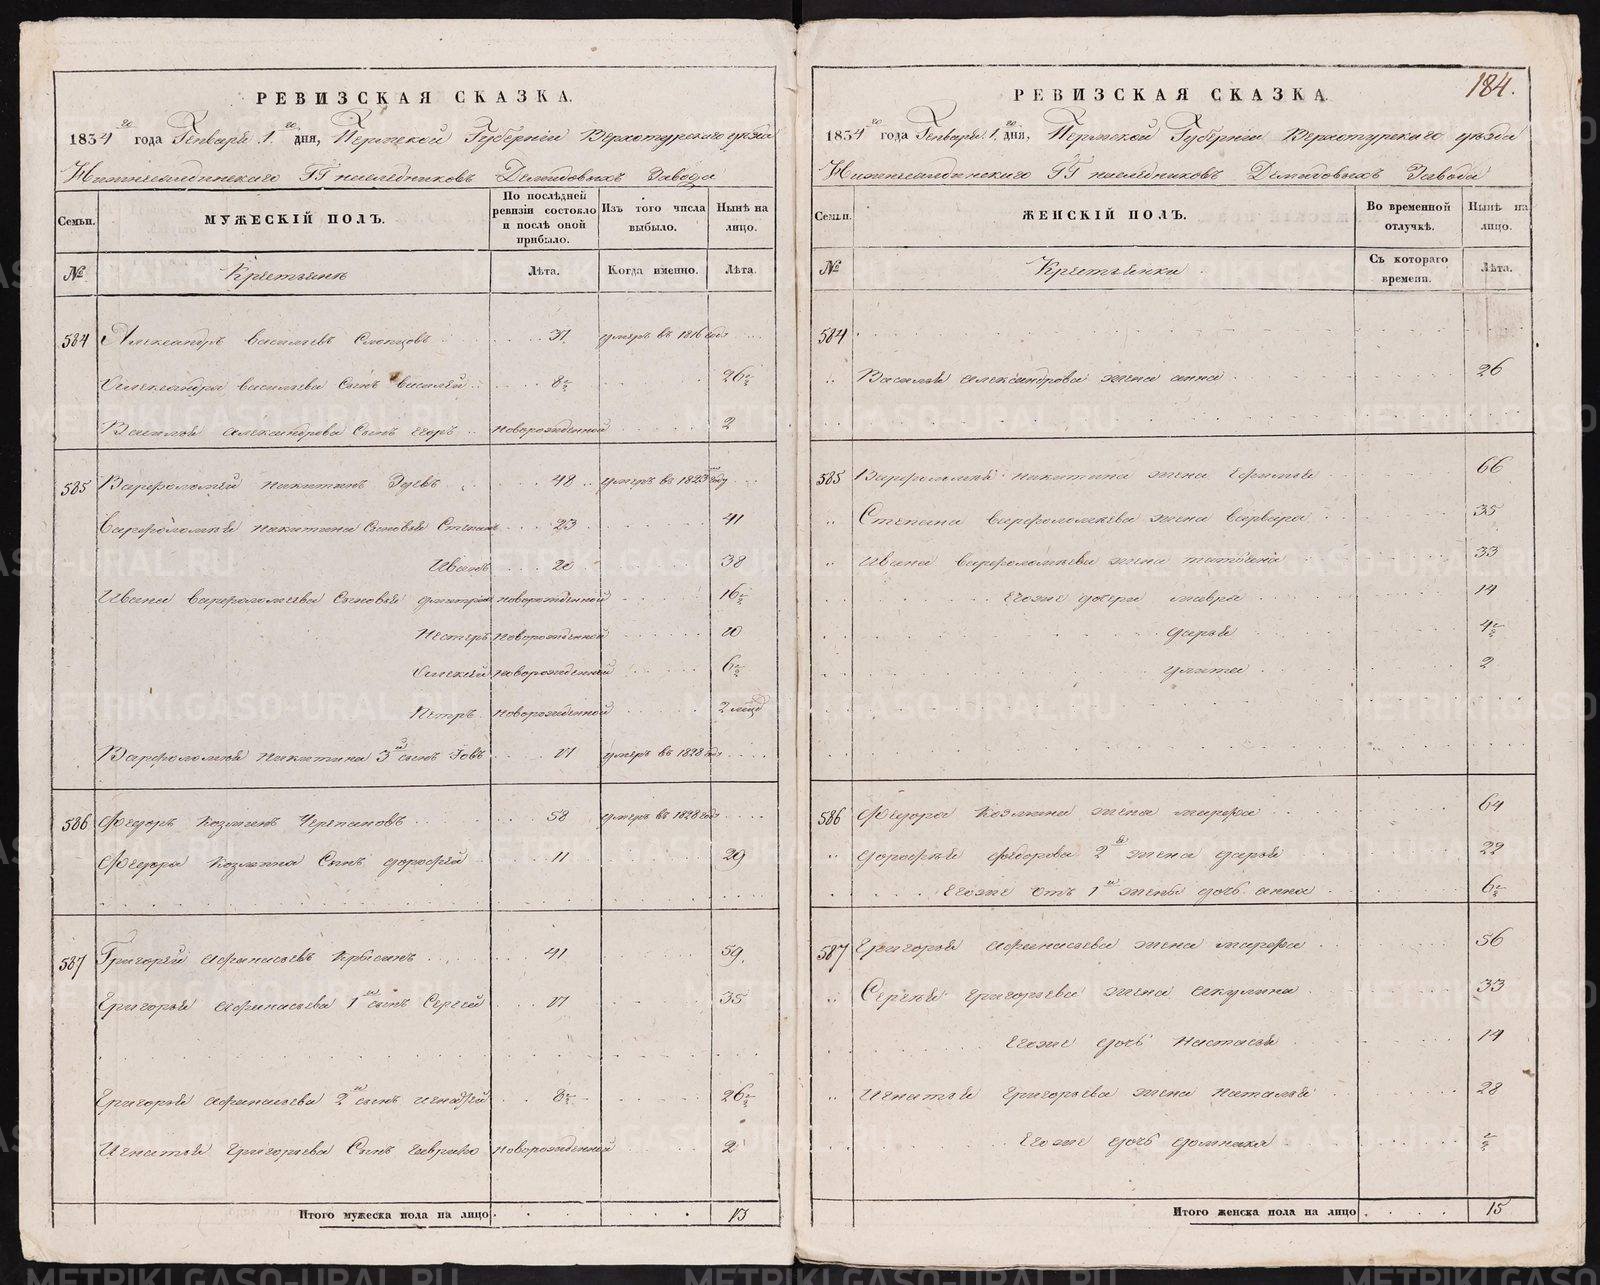 РЕВИЗСКАЯ СКАЗКА.
1834 го года Генваря 1. го дня, Пермской Губернiи Верхотурскаго уѣзда
Нижнесалдинскаго ГГ наслѣдниковъ Демидовыхъ Завода
Семьи.
МУЖЕСКIЙ ПОЛЪ.
По послѣдней ревизiи состояло и послѣ оной прибыло.
Изъ того числа выбыло.
Нынѣ на лицо.
№
Крестьянъ
Лѣта.
Когда именно.
Лѣта.
584 Александръ Васильевъ 37 умеръ въ 1816 годѣ
Александра Васильева Сынъ Василей 8½ 26½
Василья Александрова Сынъ Егоръ новорожденной 2
585 Варфоломей Никитинъ Зуевъ 48 умеръ въ 1823 году
Варфоломея Никитина Сыновья Степанъ 23 41
Иванъ 20 38
Ивана Варфоломеева Сыновья Дмитрей новорожденной 16½
Нестеръ новорожденной 10
Алексей новорожденной 6½
Петръ новорожденной 2 месц
Варфоломея Никитина 3й сынъ Iовъ 17 умеръ въ 1828 годѣ
586 Федоръ Козминъ Черепановъ 58 умеръ въ 1828 годѣ
Федора Козмина Сынъ Дорофей 11 29
587 Григорей Афанасьевъ Крысинъ 41 59
Григорья Афанасьева 1й сынъ Сергей 17 35
Григорья Афанасьева 2й сынъ Игнатей 8½ 26½
Игнатья Григорьева Сынъ Гаврило новорожденной 2
Итого мужеска пола на лицо 13
184.
РЕВИЗСКАЯ СКАЗКА.
1834 го года Генваря 1. го дня, Пермской Губернiи Верхотурскаго уѣзда
Нижнесалдинскаго ГГ наслѣдниковъ Демидовыхъ Завода
Семьи.
ЖЕНСКIЙ ПОЛЪ.
Во временной отлучкѣ.
Нынѣ на лицо.
№
Крестьянки
Съ котораго времени.
Лѣта.
584
Василья Александрова жена Анна 26
585 Варфоломея Никитина жена Ефимья 66
Степана Варфоломеева жена Варвара 35
Ивана Варфоломеева жена Татьяна 33
Егоже дочери Мавра 14
Дарья 4½
Улита 2
586 Федора Козмина жена Марфа 64
Дорофея Федорова 2я жена Дарья 22
Егоже отъ 1й жены дочь Анна 6½
587 Григорья Афанасьева жена Марфа 56
Сергея Григорьева жена Акулина 33
Егоже дочь Настасья 14
Игнатья Григорьева жена Наталья 28
Егоже дочь Домника ½
Итого женска пола на лицо 15
METRIKI.GASO-URAL.RU